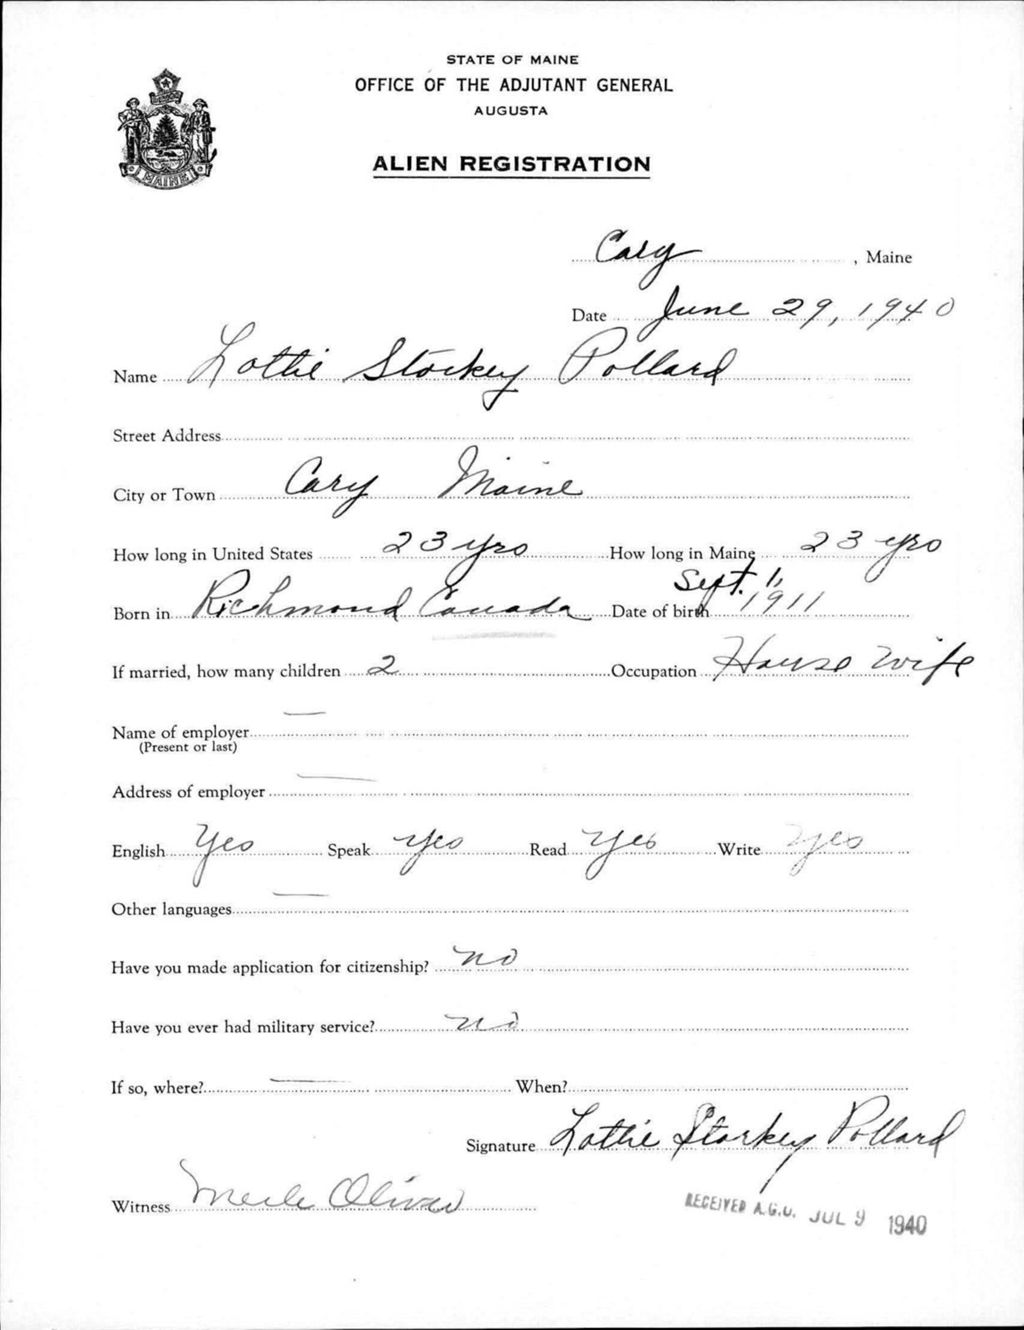 STATE OF MAINE
OFFICE OF THE ADJUTANT GENERAL
AUGUSTA
ALIEN REGISTRATION
MAINE
Cary, Maine
Date June 29, 1940
Name Lottie Storkey Pollard
Street Address
City or Town Cary Maine
How long in United States 23 yrs How long in Maine 23 yrs
Born in Richmond Canada Date of birth Sept. 11, 1911
If married, how many children 2 Occupation House wife
Name of employer —
(Present or last)
Address of employer —
English Yes Speak Yes Read Yes Write Yes
Other languages —
Have you made application for citizenship? no
Have you ever had military service? no
If so, where? — When?
Signature Lottie Storkey Pollard
Witness Merle Oliver
RECEIVED A.G.O. JUL 9 1940